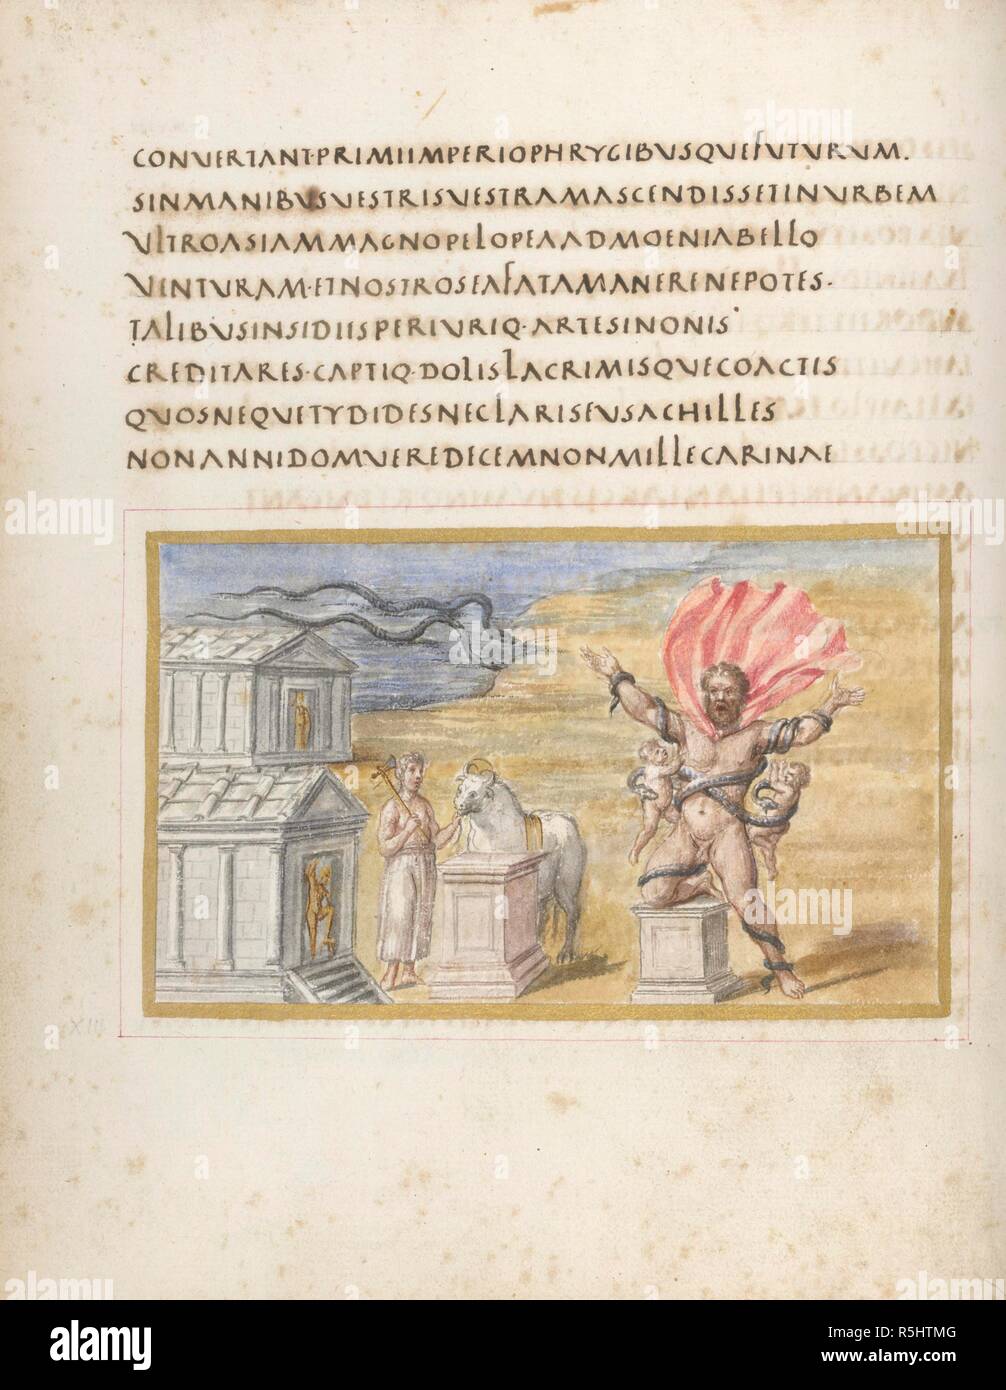 CONUERTANT·PRIMIIMPERIOPHRYGIBUSQUEFUTURUM.
SINMANIBUSUESTRISUESTRAMASCENDISSETINURBEM
ULTROASIAMMAGNOPELOPEAADMOENIABELLO
UENTURAM·ETNOSTROSEAFATAMANERENEPOTES·
TALIBUSINSIDIISPERIURIQ·ARTESINONIS
CREDITARES·CAPTIQ·DOLISLACRIMISQUECOACTIS
QUOSNEQUETYDIDESNECLARISEUSACHILLES
NONANNIDOMUEREDECEMNONMILLECARINAE
alamy
alamy
alamy
alamy
Image ID: R5HTMG
www.alamy.com